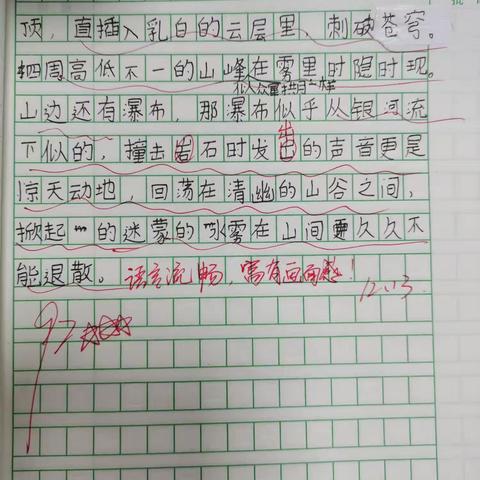 顶，直插入乳白的云层里、刺破苍穹。
四周高低不一的山峰在雾里时隐时现。
似人众星拱月一样
山边还有瀑布，那瀑布似乎从银河流
出
下似的，撞击岩石时发出的声音更是
惊天动地，回荡在清幽的山谷之间，
掀起的迷蒙的水雾在山间更久久不
能退散。语言流畅，富有画面感！
12.13